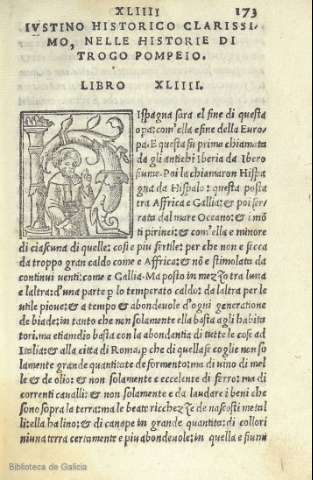 XLIIII 173
IVSTINO HISTORICO CLARISSI-
MO, NELLE HISTORIE DI
TROGO POMPEIO.
LIBRO XLIIII.
Ispagna sara el fine di questa
opa: com' ella e fine della Euro
pa. E questa fu prima chiamata
da gli antichi Iberia da Ibero
fiume. Poi la chiamaron Hisp
agna da Hispalo: questa posta
tra Affrica e Gallia: & poi ser
rata dal mare Oceano: & i mõ
ti pirinei: & com' ella e minore
di ciascuna di quelle: cosi e piu fertile: per che non e secca
da troppo gran caldo come e Affrica: & nõ e stimolata da
continui venti: come e Gallia. Ma posto in mezzo tra luna
e laltra: d'una parte p lo temperato caldo: da laltra per le
utile piove: & a tempo & abondevole d'ogni generatione
de biade: in tanto che non solamente ella basta agli habita
tori. ma etiamdio basta con la abondantia di tutte le cose ad
Italia: & alla citta di Roma, p che di quella se coglie non so
lamente grande quantitate de formento: ma di vino di mel
le & de olio: & non solamente e eccelente di ferro: ma di
correnti cavalli: & non solamente e da laudare i beni che
sono sopra la terra: ma le beate ricchezze de nascosti metal
li et ella ha lino: & di canape in grande quantita: di collori
niuna terra certamente e piu abondevole: in quella e fiumi
Biblioteca de Galicia